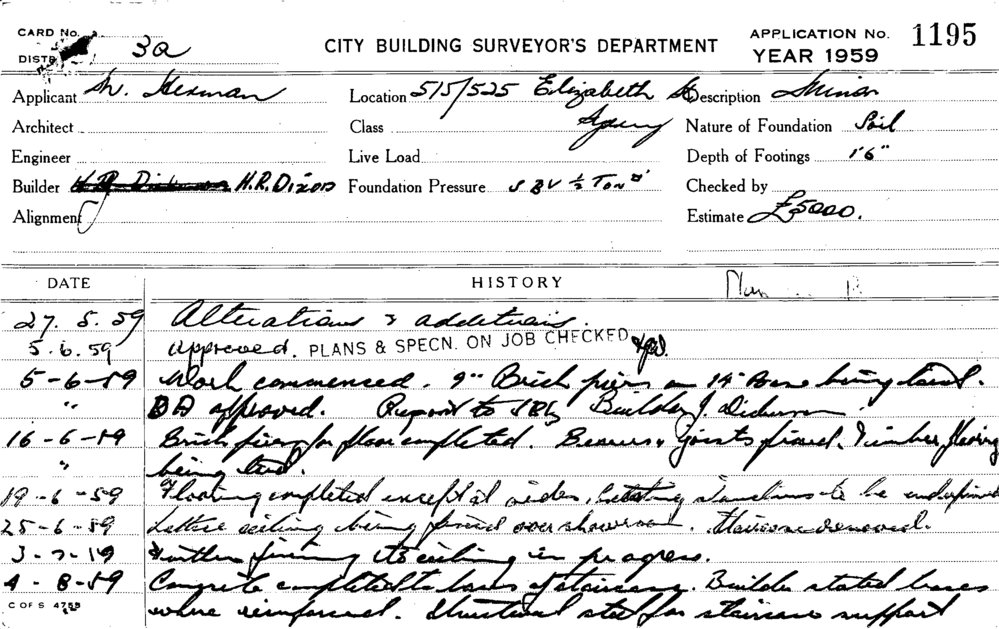 CARD No.
DISTR. 3a
CITY BUILDING SURVEYOR'S DEPARTMENT
APPLICATION No. 1195
YEAR 1959
Applicant M. Herman
Location 515/525 Elizabeth St
Description Minor
Architect
Class
Nature of Foundation Soil
Engineer
Live Load
Depth of Footings 1'6"
Builder H.R. Dixon
Foundation Pressure S B V ½ Ton
Checked by
Alignment
Estimate £5000.
DATE
HISTORY
27. 5. 59 Alterations & additions.
5. 6. 59 Approved. PLANS & SPECN. ON JOB CHECKED
5-6-59 Work commenced. 9" Brick piers on 14" Base being laid.
" approved. Report to Builder J. Dickinson.
16-6-59 Brick piers for floor completed. Beams & Joists fixed. Timber flooring
" being laid.
19-6-59 Flooring completed except at sides, existing stanchions to be underpinned
25-6-59 ceiling being fixed over showroom. Staircase removed.
3-7-59 Further fixing to ceiling in progress.
4-8-59 Concrete completed to bases of staircase. Builder stated bases
were reinforced. Structural steel for staircase support
C OF S 4755